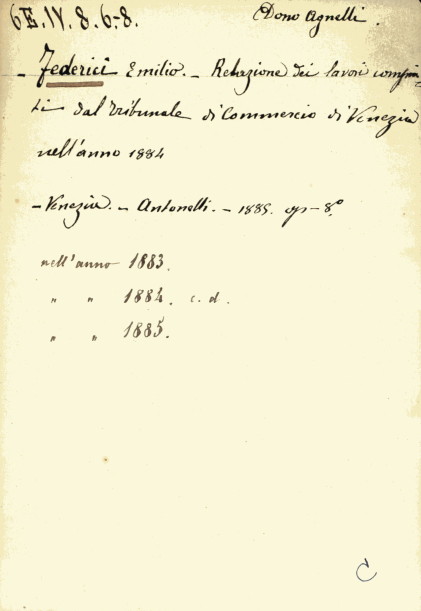 6E.IV.8.6-8.
Dono Agnelli.
- Federici Emilio. - Relazione dei lavori compiu-
ti dal Tribunale di Commercio di Venezia
nell'anno 1884
- Venezia. - Antonelli. - 1885. op - 8°.
nell'anno 1883.
" " 1884. c. d.
" " 1885.
C